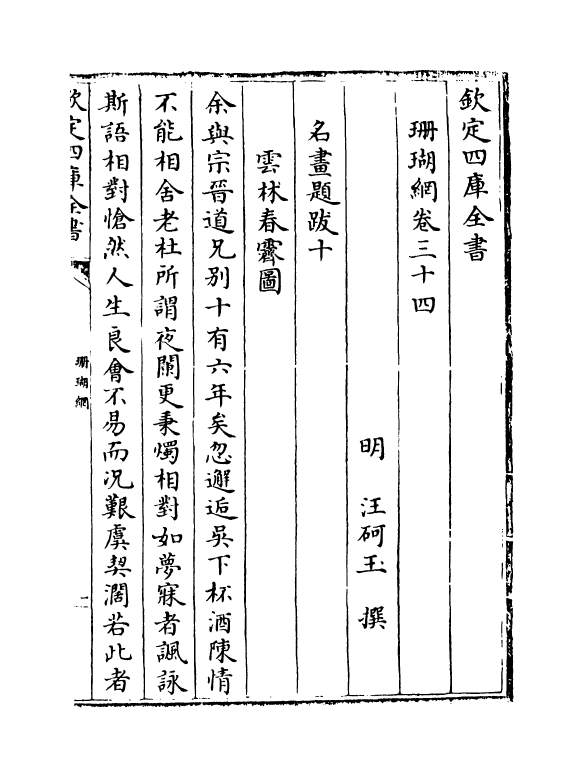 欽定四庫全書
珊瑚網卷三十四
明 汪砢玉 撰
名畫題跋十
雲林春霽圖
余與宗晉道兄别十有六年矣忽邂逅吳下杯酒陳情
不能相舍老杜所謂夜闌更秉燭相對如夢寐者諷詠
斯語相對愴然人生良會不易而况艱虞契濶若此者
欽定四庫全書
珊瑚網